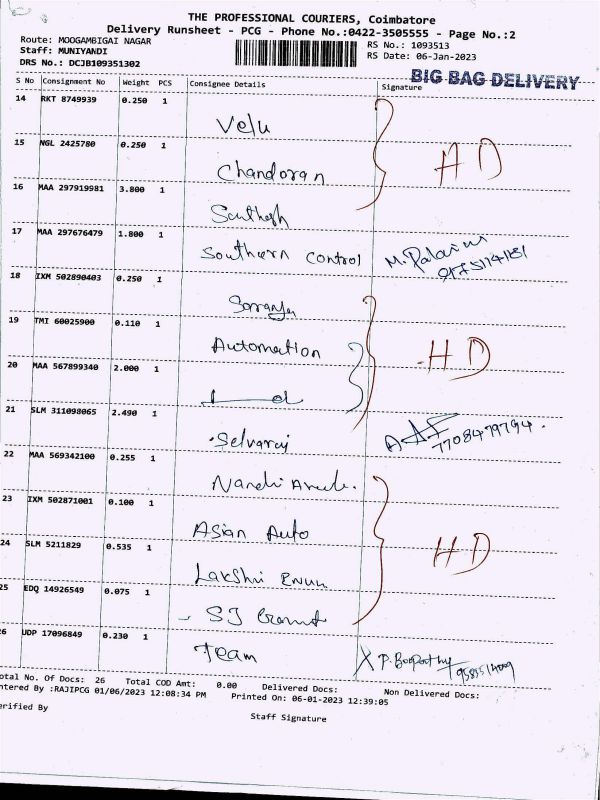 THE PROFESSIONAL COURIERS, Coimbatore
Delivery Runsheet - PCG - Phone No.:0422-3505555 - Page No.:2
Route: MOOGAMBIGAI NAGAR RS No.: 1093513
Staff: MUNIYANDI RS Date: 06-Jan-2023
DRS No.: DCJB109351302
BIG BAG DELIVERY
S No Consignment No Weight PCS Consignee Details Signature
14 RKT 8749939 0.250 1 Velu
15 NGL 2425780 0.250 1 Chandoran HD
16 MAA 297919981 3.800 1
17 MAA 297676479 1.800 1 Southern control M.
18 IXM 502890403 0.250 1
19 TMI 60025900 0.110 1 Automation HD
20 MAA 567899340 2.000 1
21 SLM 311098065 2.490 1 Selvaraj 7708479794
22 MAA 569342100 0.255 1 Nandhi
23 IXM 502871001 0.100 1 Asian Auto HD
24 SLM 5211829 0.535 1 Lakshmi
25 EDQ 14926549 0.075 1 SJ
26 UDP 17096849 0.230 1 Team X P. Boopathy
otal No. Of Docs: 26 Total COD Amt: 0.00 Delivered Docs: Non Delivered Docs:
ntered By :RAJIPCG 01/06/2023 12:08:34 PM Printed On: 06-01-2023 12:39:05
erified By Staff Signature